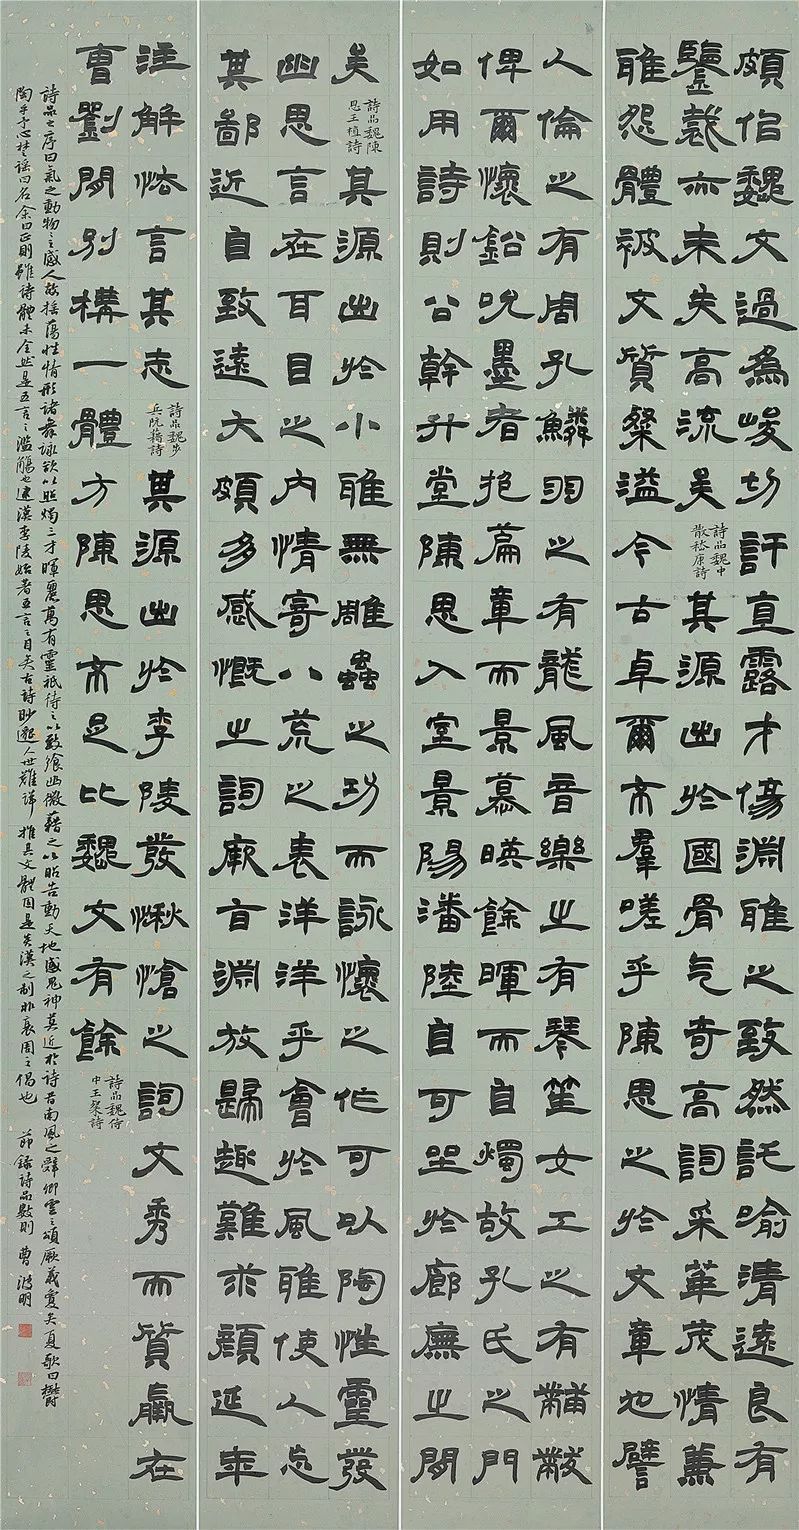 頗似魏文過為峻切訐直露才傷淵雅之致然託喻清遠良有
鑒裁亦未失高流矣
詩品魏中
散嵇康詩
其源出於國風骨气奇高詞采華茂情兼
雅怨體被文質粲溢今古卓爾不羣嗟乎陳思之於文章也譬
人倫之有周孔鱗羽之有龍鳳音樂之有琴笙女工之有黼黻
俾爾懷鉛吮墨者抱篇章而景慕暎餘暉而自燭故孔氏之門
如用詩則公幹升堂陳思入室景陽潘陸自可坐於廊廡之間
矣
詩品魏陳
思王植詩
其源出於小雅無雕蟲之功而詠懷之作可以陶性靈發
幽思言在耳目之內情寄八荒之表洋洋乎會於風雅使人忘
其鄙近自致遠大頗多感慨之詞厥旨淵放歸趣難求顏延年
注解怯言其志
詩品魏步
兵阮籍詩
其源出於李陵發愀愴之詞文秀而質羸在
曹劉間別構一體方陳思不足比魏文有餘
詩品魏侍
中王粲詩
詩品之序曰氣之動物之感人故搖蕩性情形諸舞詠欲以照燭三才暉麗萬有靈祇待之以致饗幽微藉之以昭告動天地感鬼神莫近於詩昔南風之辭卿雲之頌厥義夐矣夏歌曰鬱
陶乎予心楚謠曰名余曰正則雖詩體未全然是五言之濫觴也逮漢李陵始著五言之目矣古詩眇邈人世難詳推其文體固是炎漢之制非衰周之倡也 節錄詩品數則 曹 明